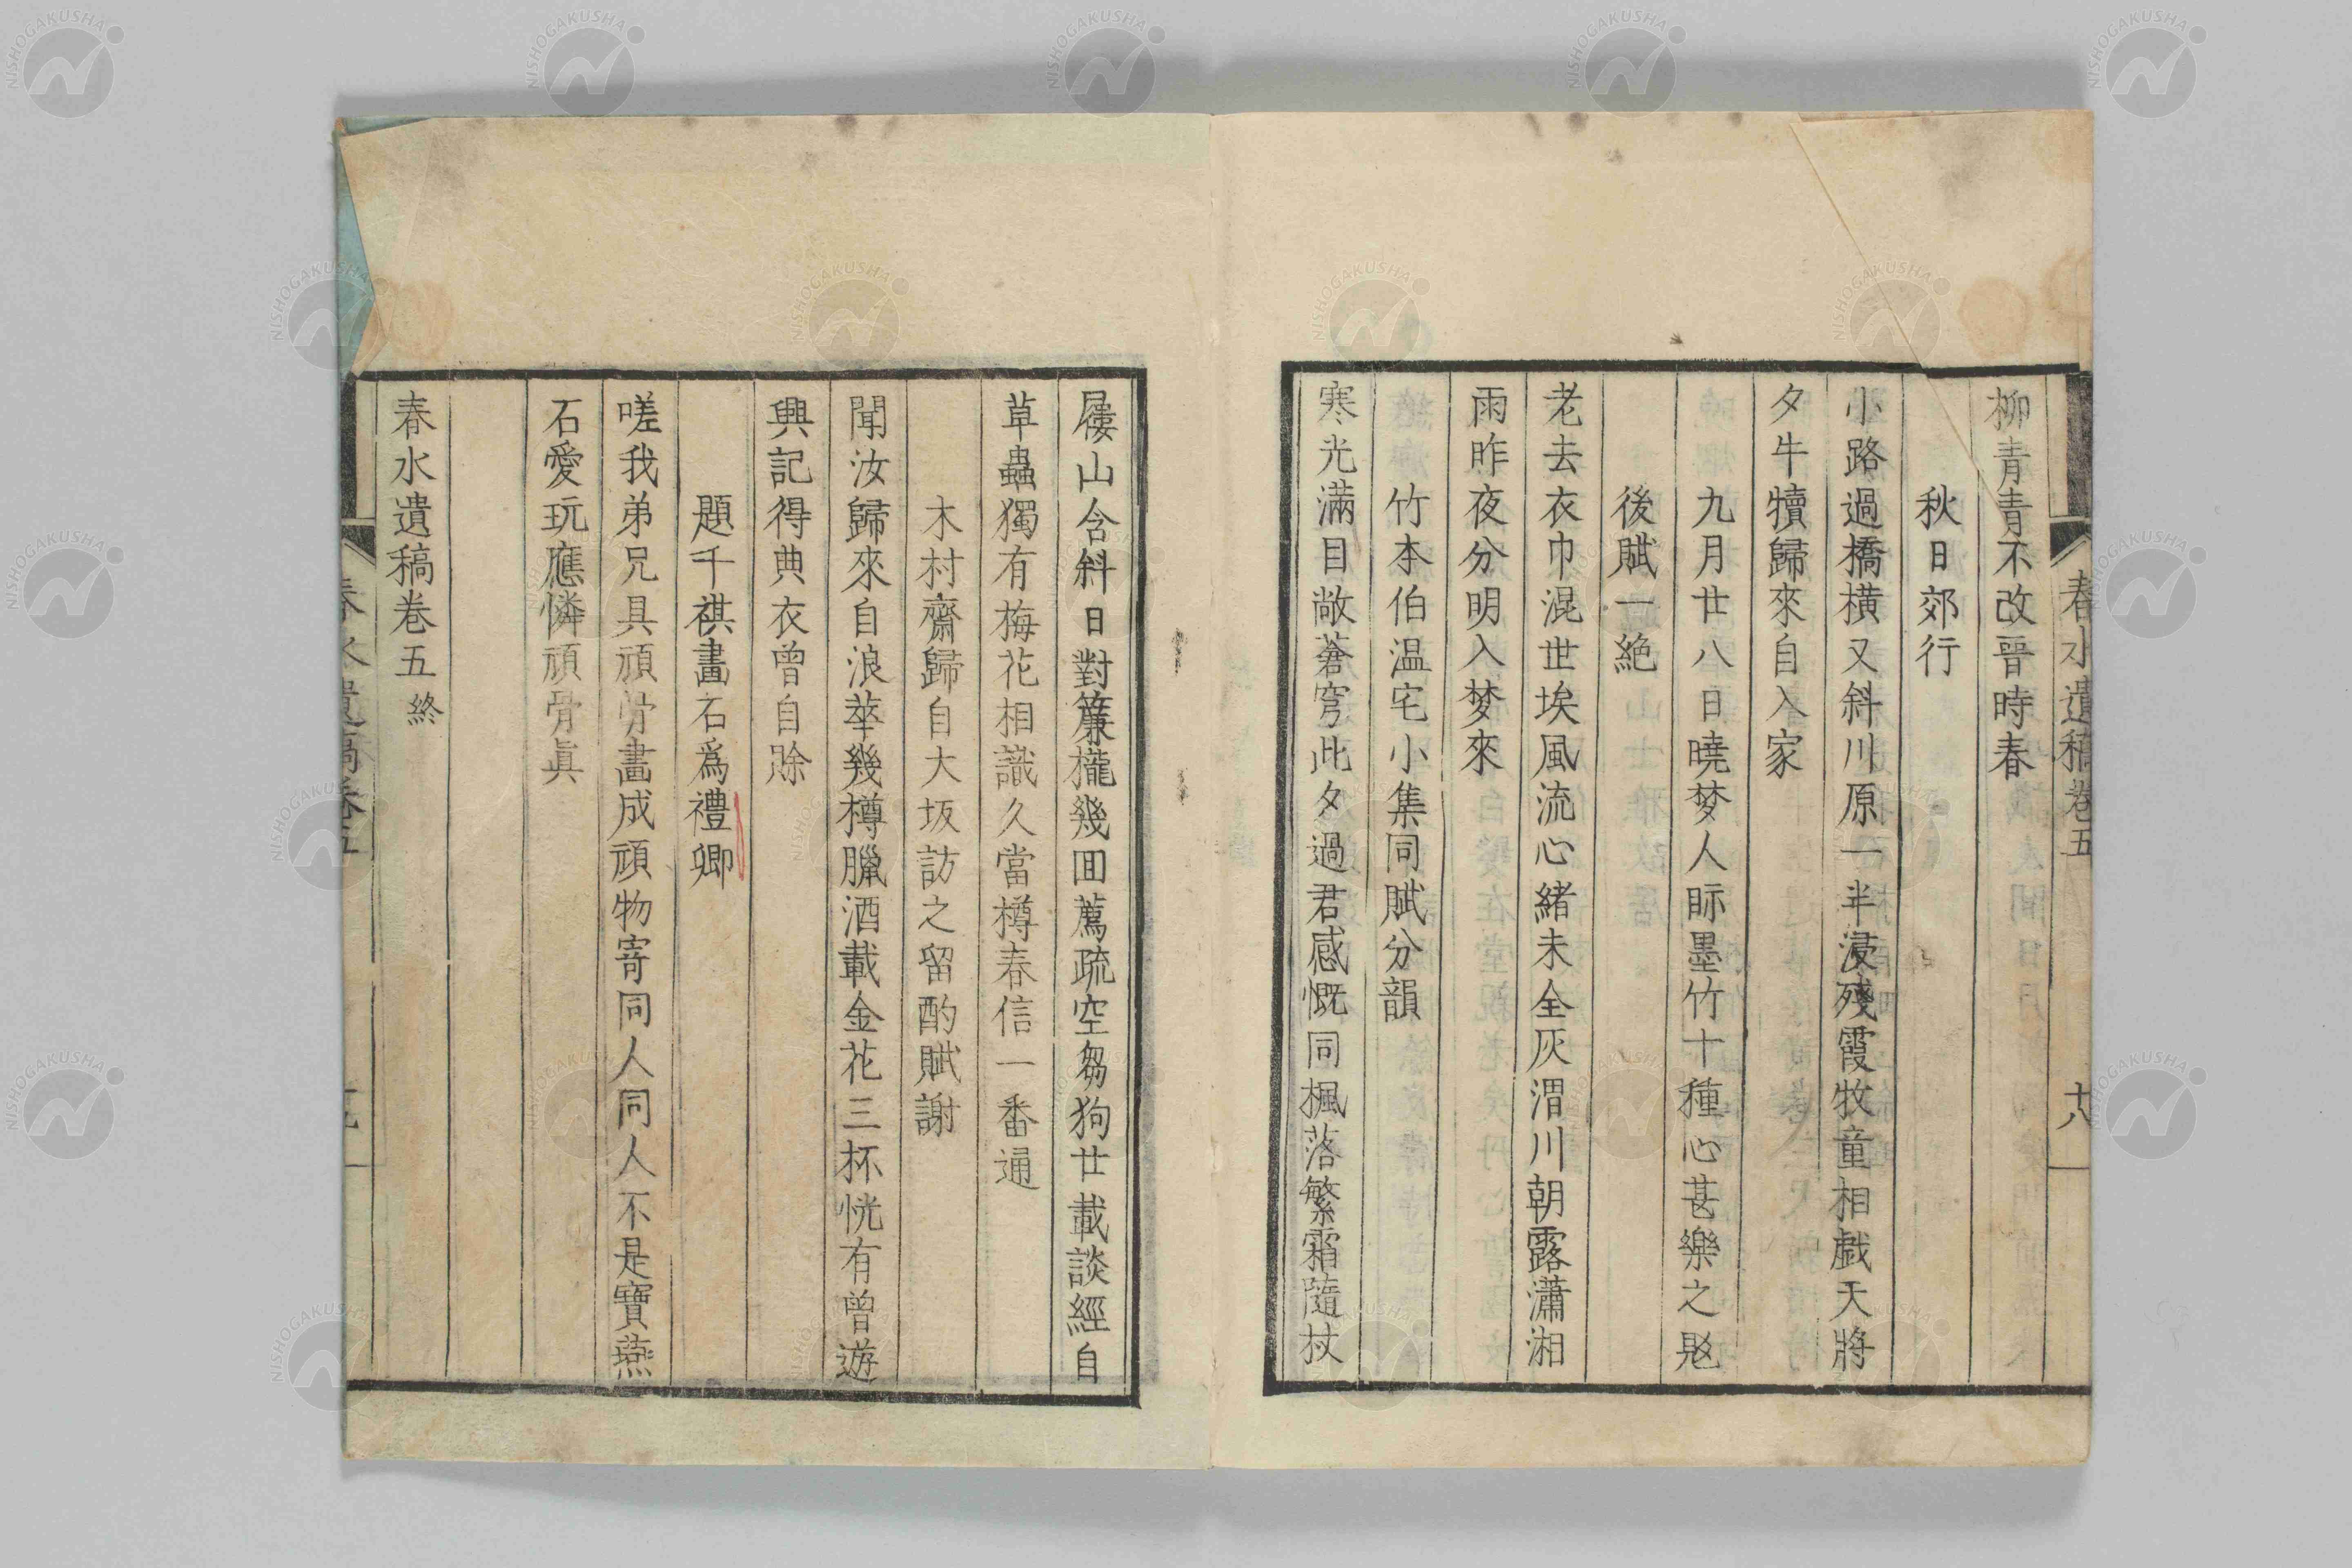 春水遺稿卷五
十八
柳青青不改晉時春
秋日郊行
小路過橋橫又斜川原一半浸殘霞牧童相戲天將
夕牛犢歸來自入家
九月廿八日曉梦人眎墨竹十種心甚樂之覐
後賦一絶
老去衣巾混世埃風流心緒未全灰渭川朝露瀟湘
雨昨夜分明入梦來
竹本伯温宅小集同賦分韻
寒光滿目敞蒼穹此夕過君感慨同楓落繁霜隨杖
屨山含斜日對簾櫳幾回薦疏空芻狗廿載談經自
草蟲獨有梅花相識久當樽春信一番通
木村齋歸自大坂訪之留酌賦謝
聞汝歸來自浪華幾樽臘酒載金花三杯恍有曾遊
興記得典衣曾自賖
題千祺畫石爲禮卿
嗟我弟兄具頑骨畫成頑物寄同人同人不是寶燕
石愛玩應憐頑骨眞
春水遺稿卷五終
春水遺稿卷五
NISHOGAKUSHA